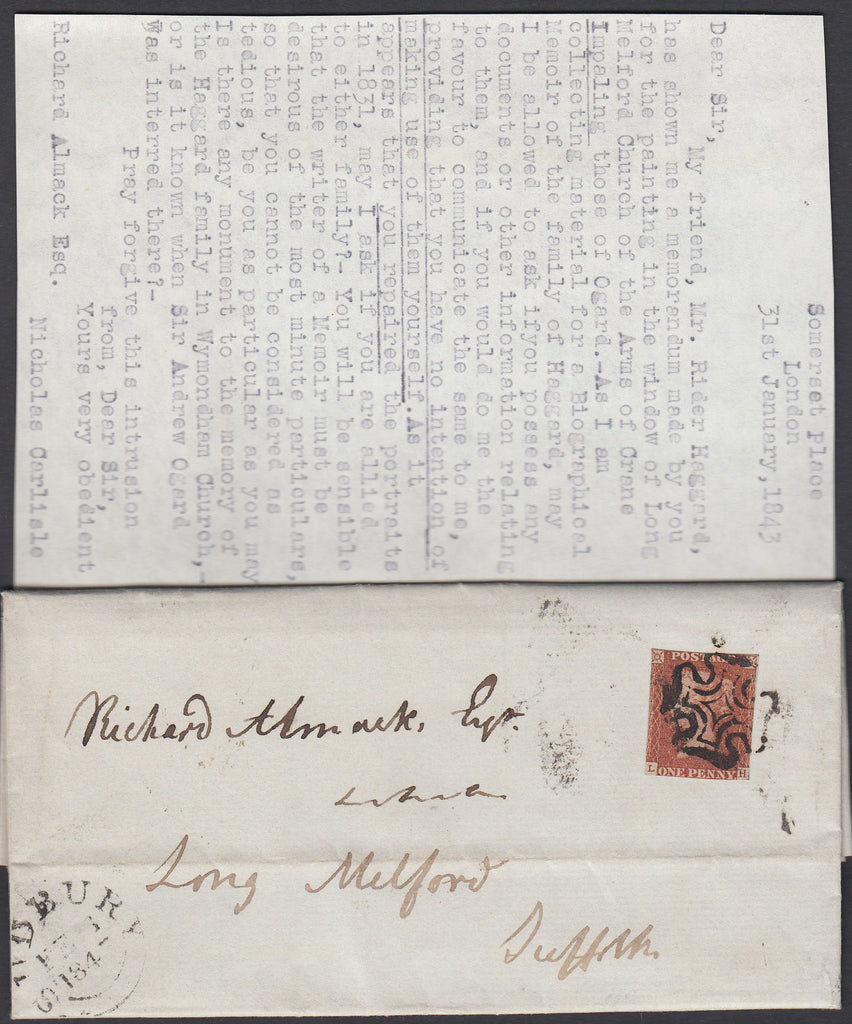 Somerset Place
London
31st January,1843
Dear Sir,
My friend, Mr. Rider Haggard,
has shown me a memorandum made by you
for the painting in the window of Long
Melford Church of the Arms of Crane
Impaling those of Ogard.-As I am
collecting material for a Biographical
Memoir of the family of Haggard, may
I be allowed to ask ifyou possess any
documents or other information relating
to them, and if you would do me the
favour to communicate the same to me,
providing that you have no intention of
making use of them yourself.As it
appears that you repaired the portraits
in 1831, may I ask if you are allied
to either family?- You will be sensible
that the writer of a Memoir must be
desirous of the most minute particulars,
so that you cannot be considered as
tedious, be you as particular as you may
Is there any monument to the memory of
the Haggard family in Wymondham Church,-
or is it known when Sir Andrew Ogard
was interred there?-
Pray forgive this intrusion
from, Dear Sir,
Yours very obedient
Nicholas Carlisle
Richard Almack Esq.
POSTAGE
L ONE PENNY H
Richard Almack, Esqr.
Long Melford
Suffolk
SUDBURY
FE 1
184